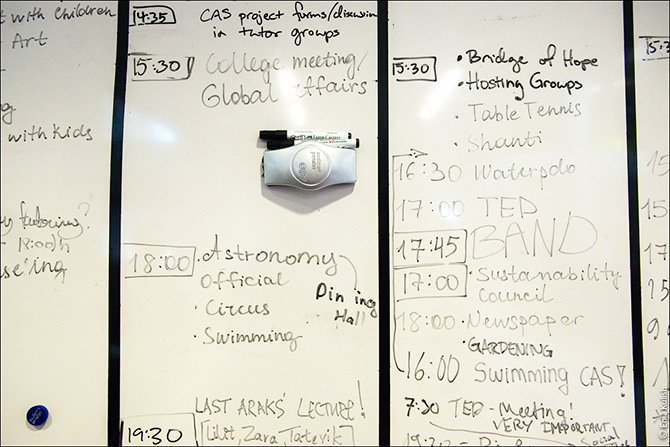 with Children
Art
with kids
18:00h
14:35
CAS project forms/discussion
in tutor groups
15:30
College meeting/
Global Affairs
18:00
• Astronomy
Official
Dining
Hall
• Circus
• Swimming
LAST ARAKS' LECTURE!
19:30
[Lilit, Zara, Tatevik]
15:30
• Bridge of Hope
• Hosting Groups
• Table Tennis
• Shanti
16:30 Waterpolo
17:00 TED
17:45 BAND
17:00 • Sustainability
Council
18:00 • Newspaper
• GARDENING
16:00 Swimming CAS!
7:30 TED - Meeting!
VERY IMPORTANT